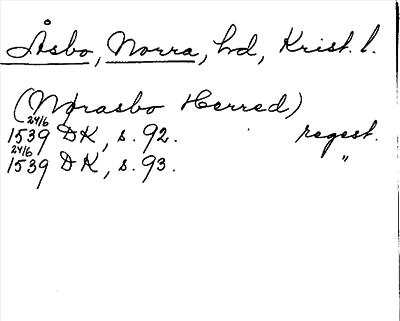 Åsbo, Norra, hd, Krist. l.
(Norasbo Herred)
24/6
1539 DK, s. 92. regest.
24/6
1539 DK, s. 93. "